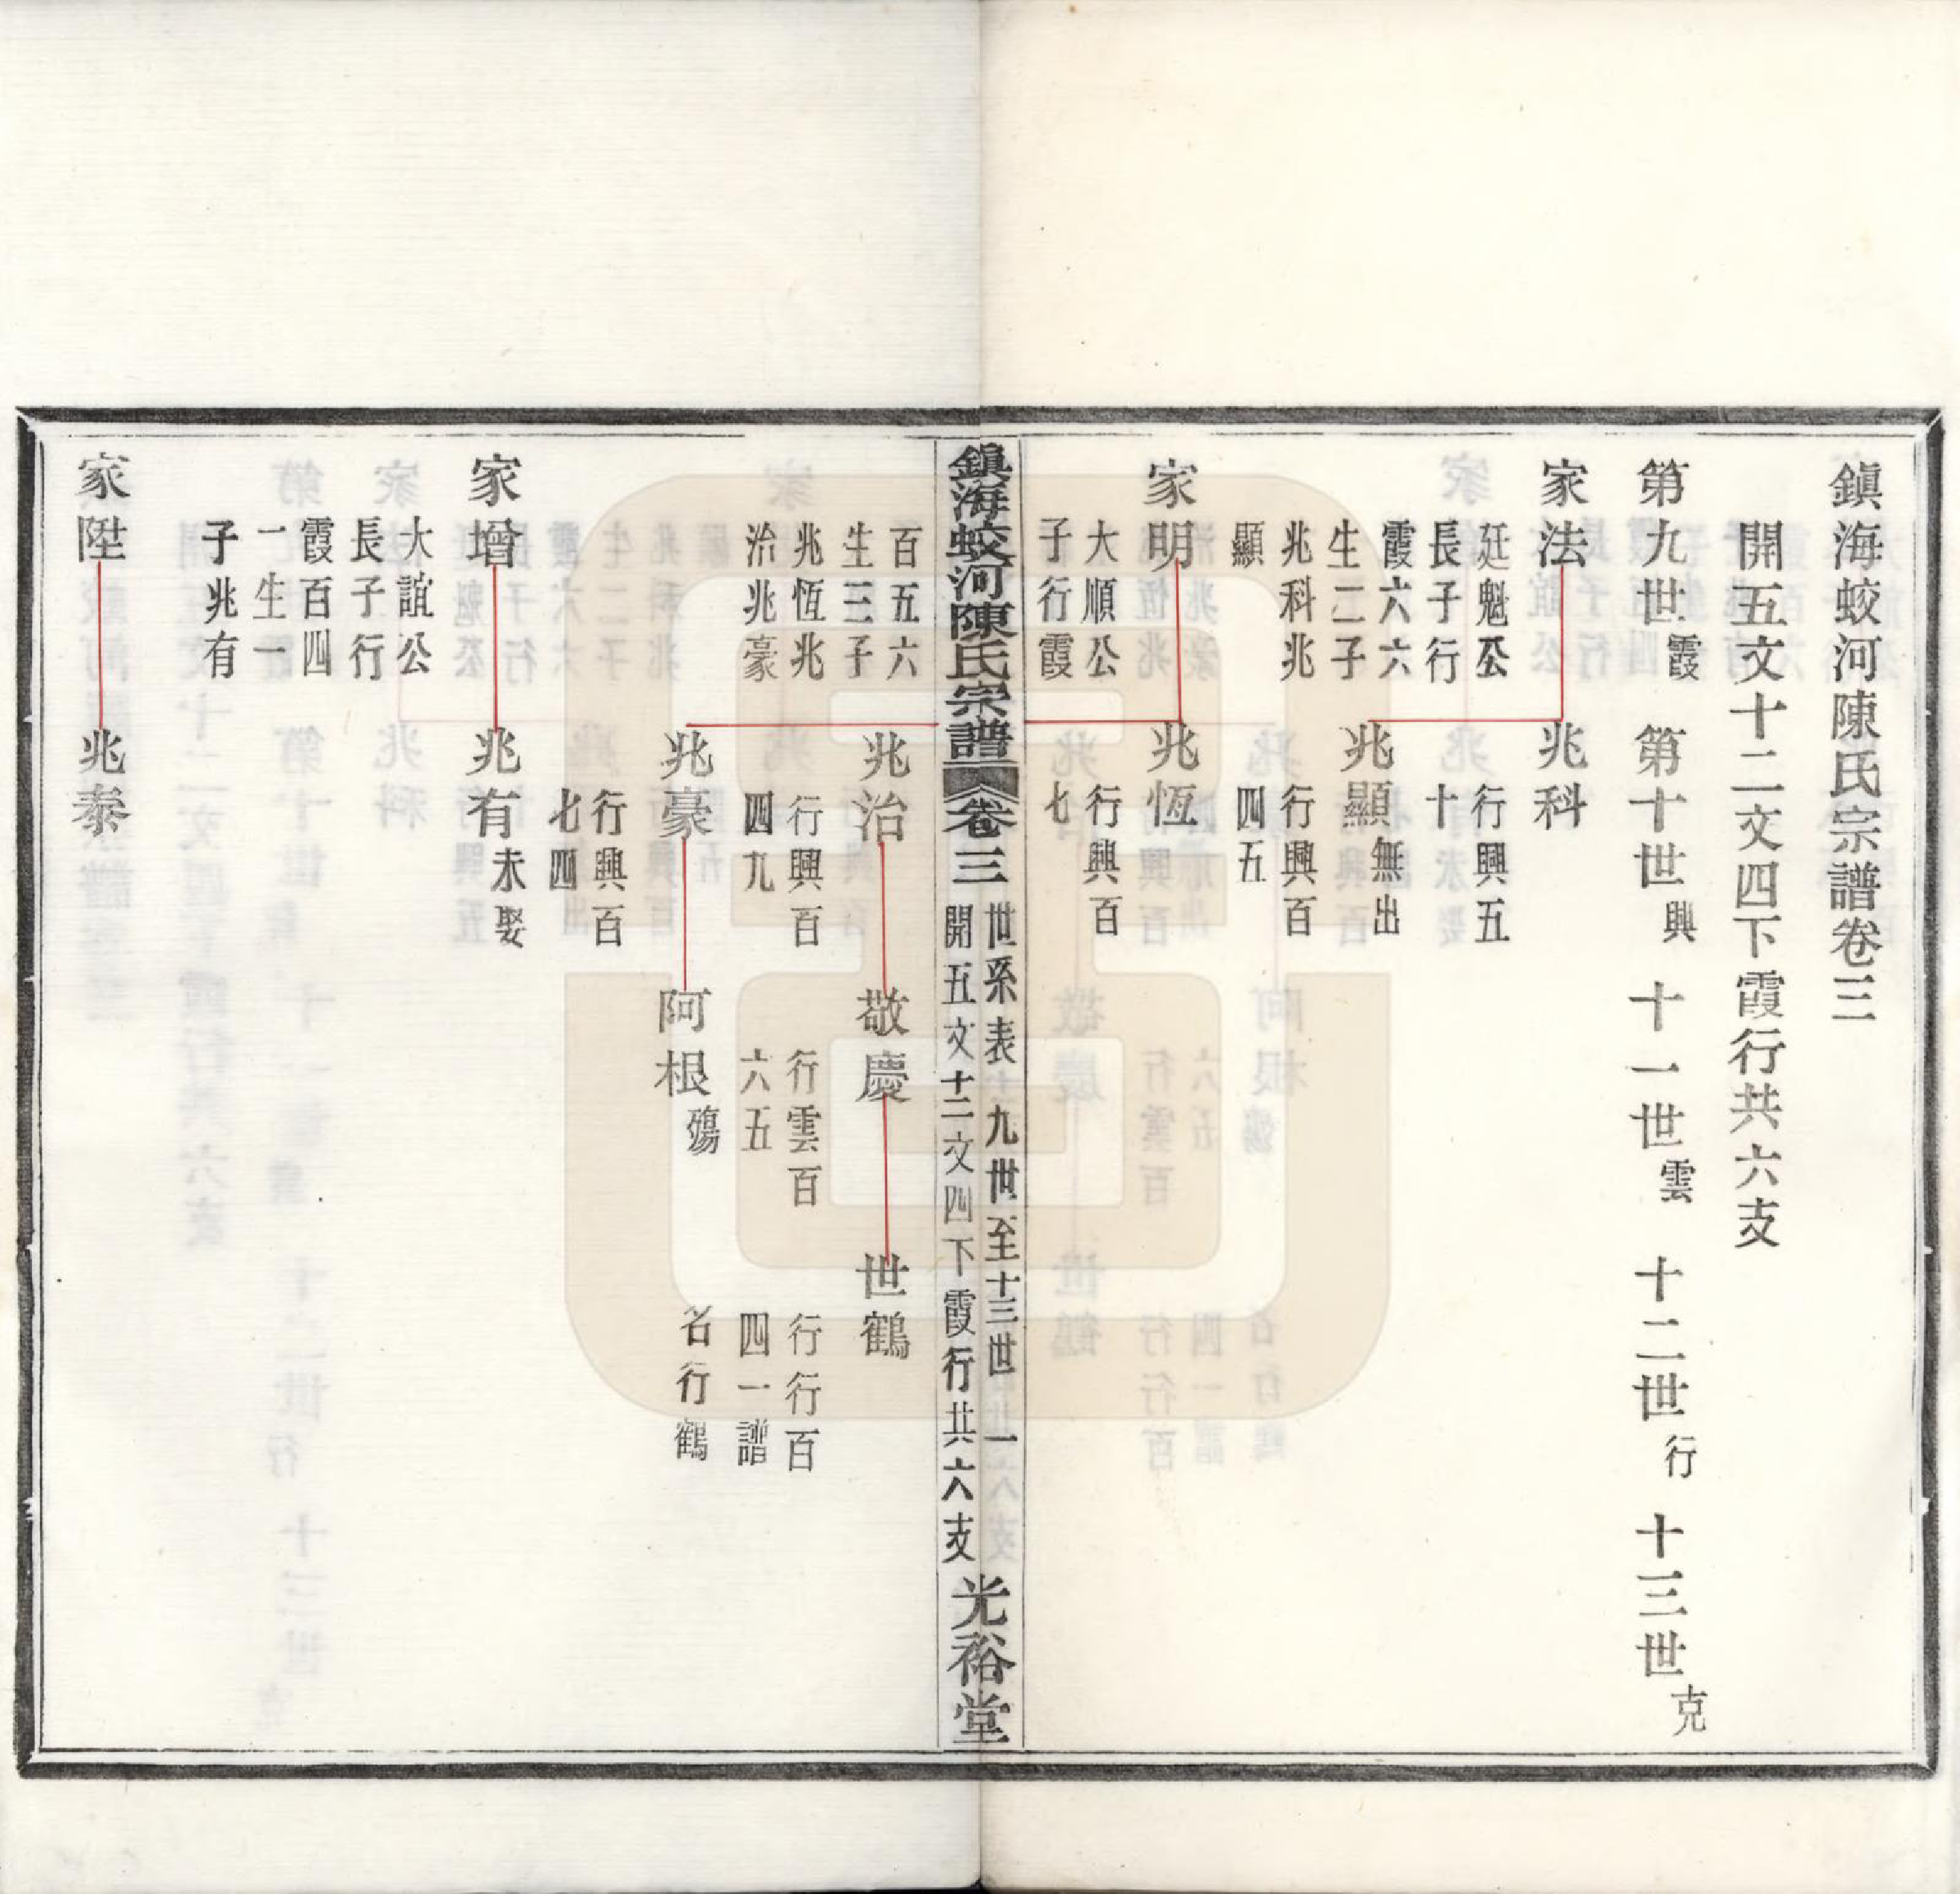 鎮海蛟河陳氏宗譜卷三
開五文十二文四下霞行共六支
第九世霞 第十世興 十一世雲 十二世行 十三世克
家法
廷魁公
長子行
霞六六
生二子
兆科兆
顯
兆科
行興五
十
兆顯無出
行興百
四五
家明
大順公
子行霞
兆恆
行興百
七
鎮海蛟河陳氏宗譜 卷三 世系表 九世至十三世 一
開五文十二文四下霞行共六支 光裕堂
百五六
生三子
兆恆兆
治兆豪
兆治
行興百
四九
敬慶
行雲百
六五
世鶴
行行百
四一譜
名行鶴
兆豪
行興百
七四
阿根殤
家增
大誼公
長子行
霞百四
一生一
子兆有
兆有未娶
家陞
兆泰